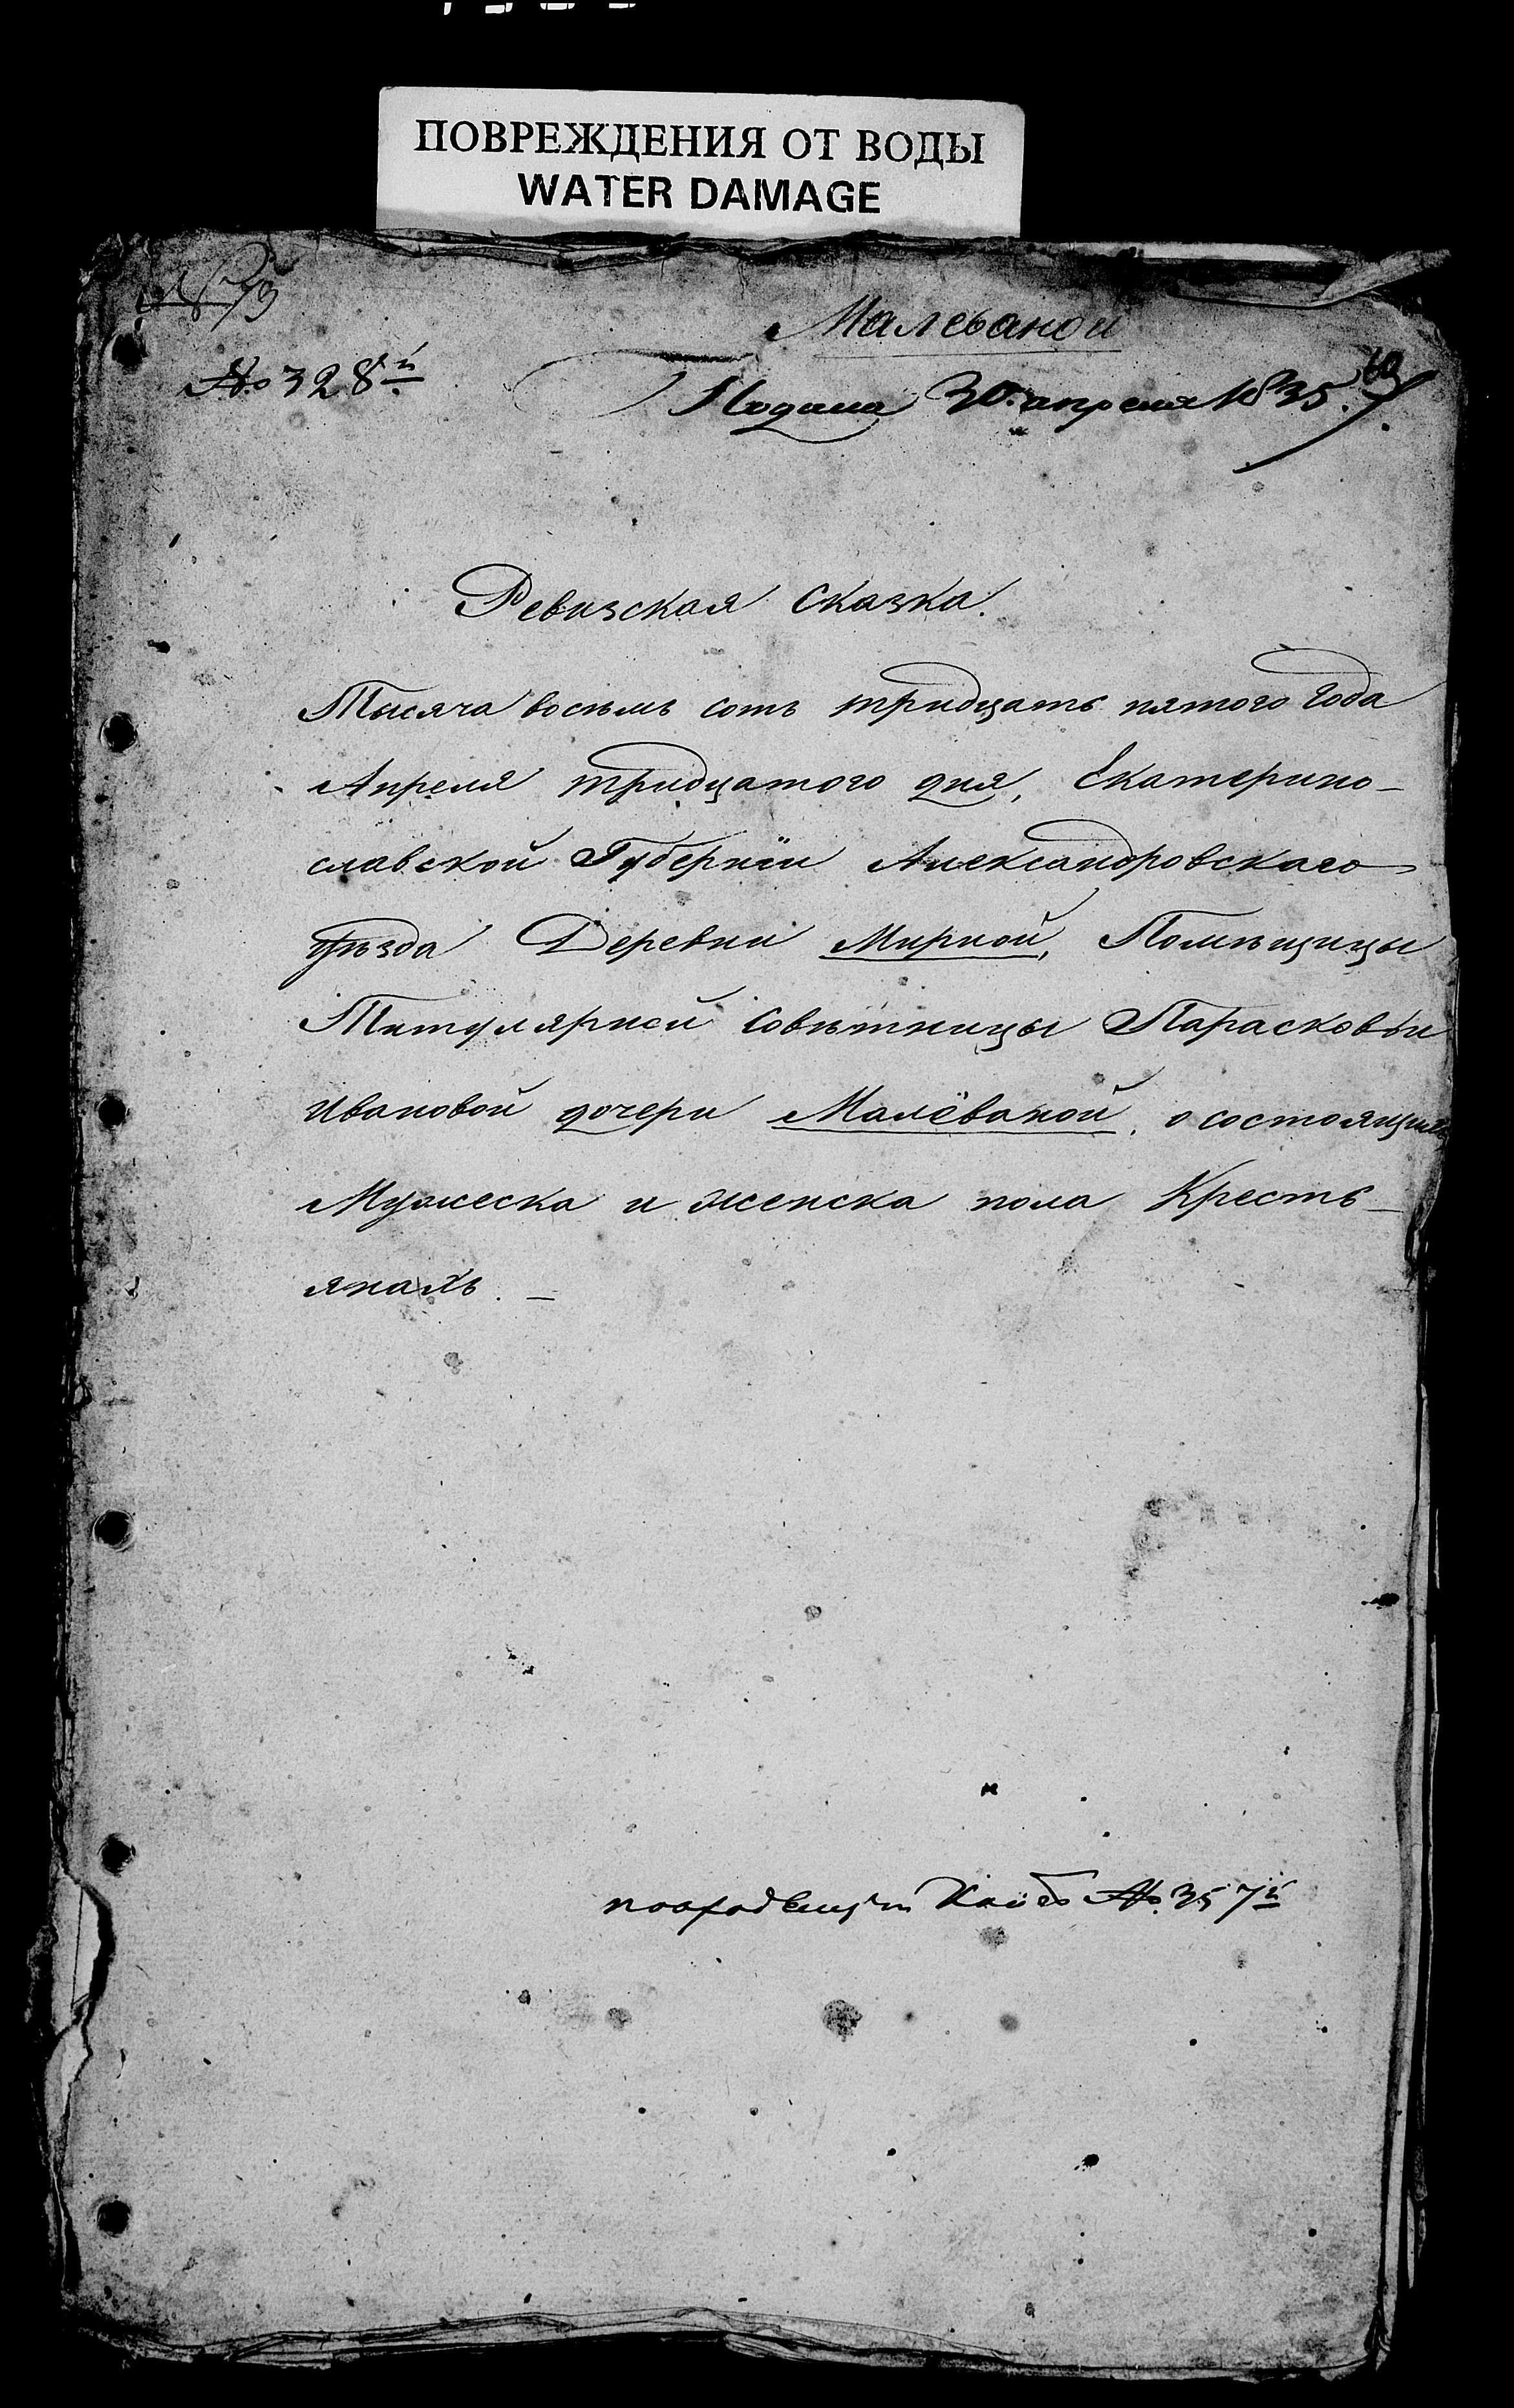 ПОВРЕЖДЕНИЯ ОТ ВОДЫ
WATER DAMAGE
Малеваной
№ 328й
Подана 30. апреля 1835.
Ревизская сказка.
Тысяча восемь сотъ тридцать пятого года
Апреля тридцатого дня, Екатерино-
славской Губерніи Александровскаго
уѣзда Деревни Мирной, Помѣщицы
Титулярной Совѣтницы Парасковьи
Ивановой дочери Малёваной, о состоящихъ
Мужеска и женска пола Кресть-
янахъ. —
№. 357й